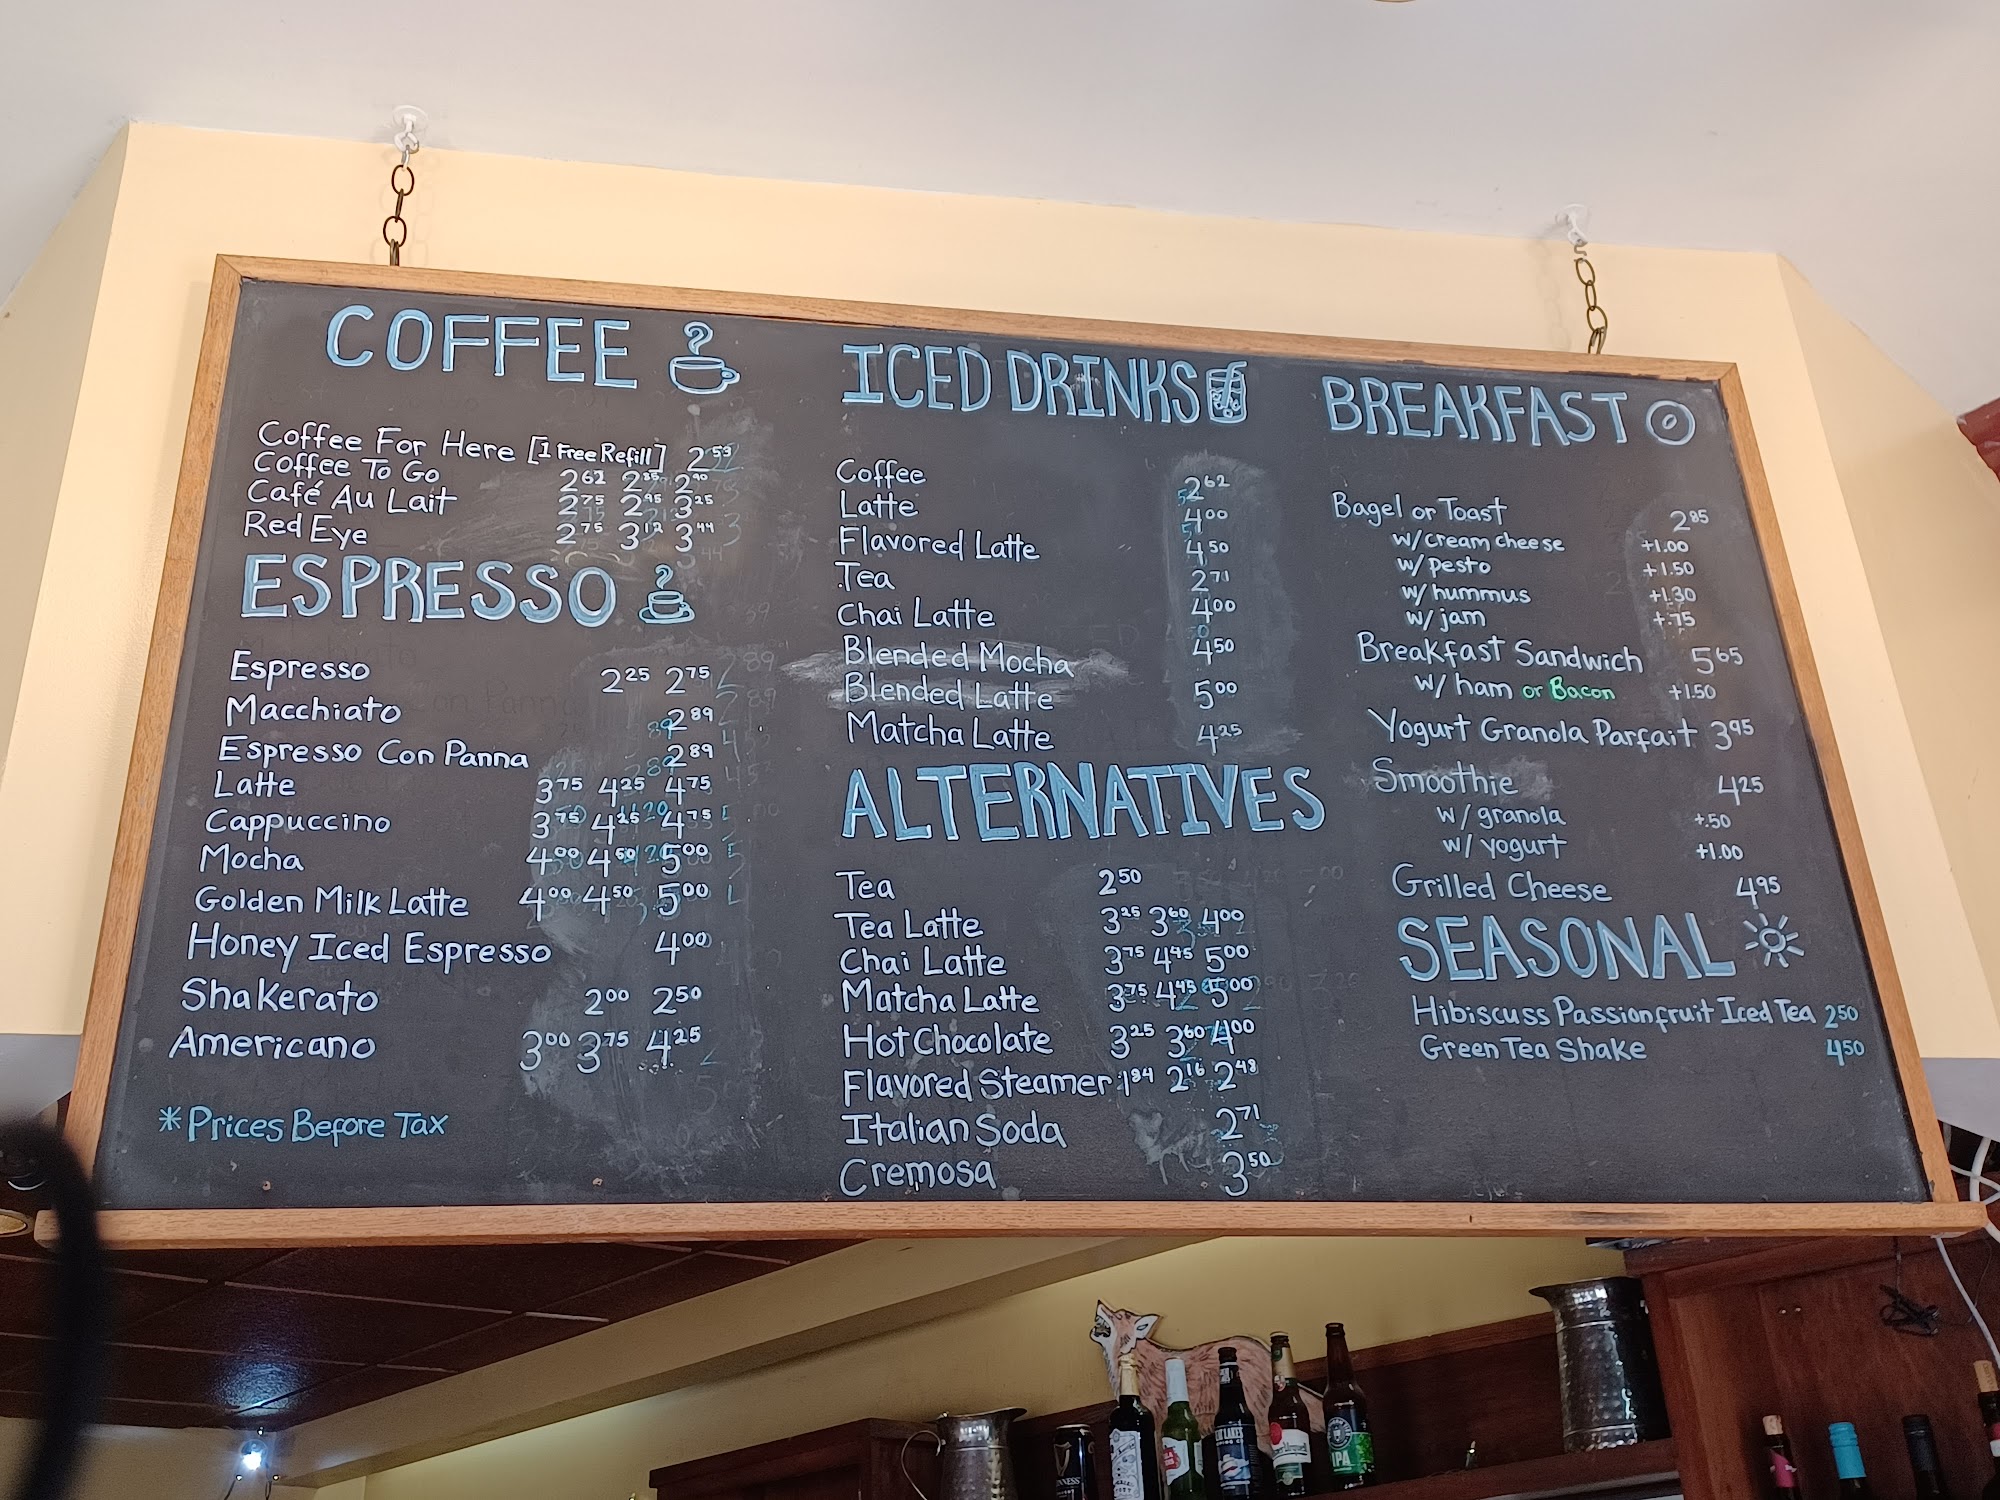 COFFEE
Coffee For Here [1 Free Refill] 2 53
Coffee To Go 2 62 2 85 2 90
Café Au Lait 2 75 2 95 3 25
Red Eye 2 75 3 12 3 44
ESPRESSO
Espresso 2 25 2 75
Macchiato 2 89
Espresso Con Panna 2 89
Latte 3 75 4 25 4 75
Cappuccino 3 75 4 25 4 75
Mocha 4 00 4 50 5 00
Golden Milk Latte 4 00 4 50 5 00
Honey Iced Espresso 4 00
Shakerato 2 00 2 50
Americano 3 00 3 75 4 25
*Prices Before Tax
ICED DRINKS
Coffee 2 62
Latte 4 00
Flavored Latte 4 50
Tea 2 71
Chai Latte 4 00
Blended Mocha 4 50
Blended Latte 5 00
Matcha Latte 4 25
ALTERNATIVES
Tea 2 50
Tea Latte 3 25 3 60 4 00
Chai Latte 3 75 4 45 5 00
Matcha Latte 3 75 4 45 5 00
Hot Chocolate 3 25 3 60 4 00
Flavored Steamer 1 84 2 16 2 48
Italian Soda 2 71
Cremosa 3 50
BREAKFAST
Bagel or Toast 2 85
w/ cream cheese +1.00
w/ pesto +1.50
w/ hummus +1.30
w/ jam +.75
Breakfast Sandwich 5 65
w/ ham or Bacon +1.50
Yogurt Granola Parfait 3 95
Smoothie 4 25
w/ granola +.50
w/ yogurt +1.00
Grilled Cheese 4 95
SEASONAL
Hibiscuss Passionfruit Iced Tea 2 50
Green Tea Shake 4 50
IPA